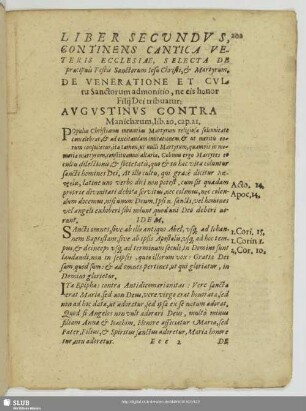 LIBER SECVNDVS, 202
CONTINENS CANTICA VE-
TERIS ECCLESIAE, SELECTA DE
præcipuis Festis Sanctorum Iesu Christi, & Martyrum,
DE VENERATIONE ET CVL
tu Sanctorum admonitio, ne eis honor
Filij Dei tribuatur,
AVGVSTINVS CONTRA
Manichæum, lib. 20, cap. 21,
Populus Christianus memorias Martyrum religiosa solennitate
concelebrat, & ad excitandam imitationem, & ut meritis eo-
rum consocietur, ita tamen, ut nulli Martyrum, quamvis in me-
moria martyrum, constituamus altaria, Colimus ergo Martyres eo
cultu dilectionis & societatis, quo & in hac vita coluntur
sancti homines Dei, At illo cultu, qui græcè dicitur
latinè uno verbo dici non potest, cum sit quædam
propriè divinitati debita servitus, nec colimus, nec co-
lendum docemus, nisi unum Deum, Ipsi sancti, vel homines
vel angeli exhiberi sibi nolunt quod uni Deo deberi no-
runt.
Acto. 14,
Apoc, 14,
IDEM,
Sancti omnes, sive ab illo antiquo Abel, usq, ad Iohan-
nem Baptistam, sive ab ipsis Apostolis, usq, ad hoc tem-
pus & deinceps usq, ad terminum seculi, in Domino sunt
laudandi, non in seipsis, quia illorum vox: Gratia Dei
sum quod sum: & ad omnes pertinet, ut qui gloriatur, in
Domino glorietur,
1. Cori, 15,
1. Corin 1.
2, Cor, 10,
Ita Epipha: contra Antidicomaritanos: Verè sancta
erat Maria, sed non Deus, verè virgo erat honorata, sed
non ad hoc data, ut adoretur, sed ipsa ex se natum adorat,
Quod si Angelos non vult adorari Deus, multò minus
filiam Annæ & Ioachim, Honore afficiatur Maria, sed
Pater, Filius, & Spiritus sanctus adoretur, Maria honore-
tur, non adoretur.
Eee 2 DE
SLUB